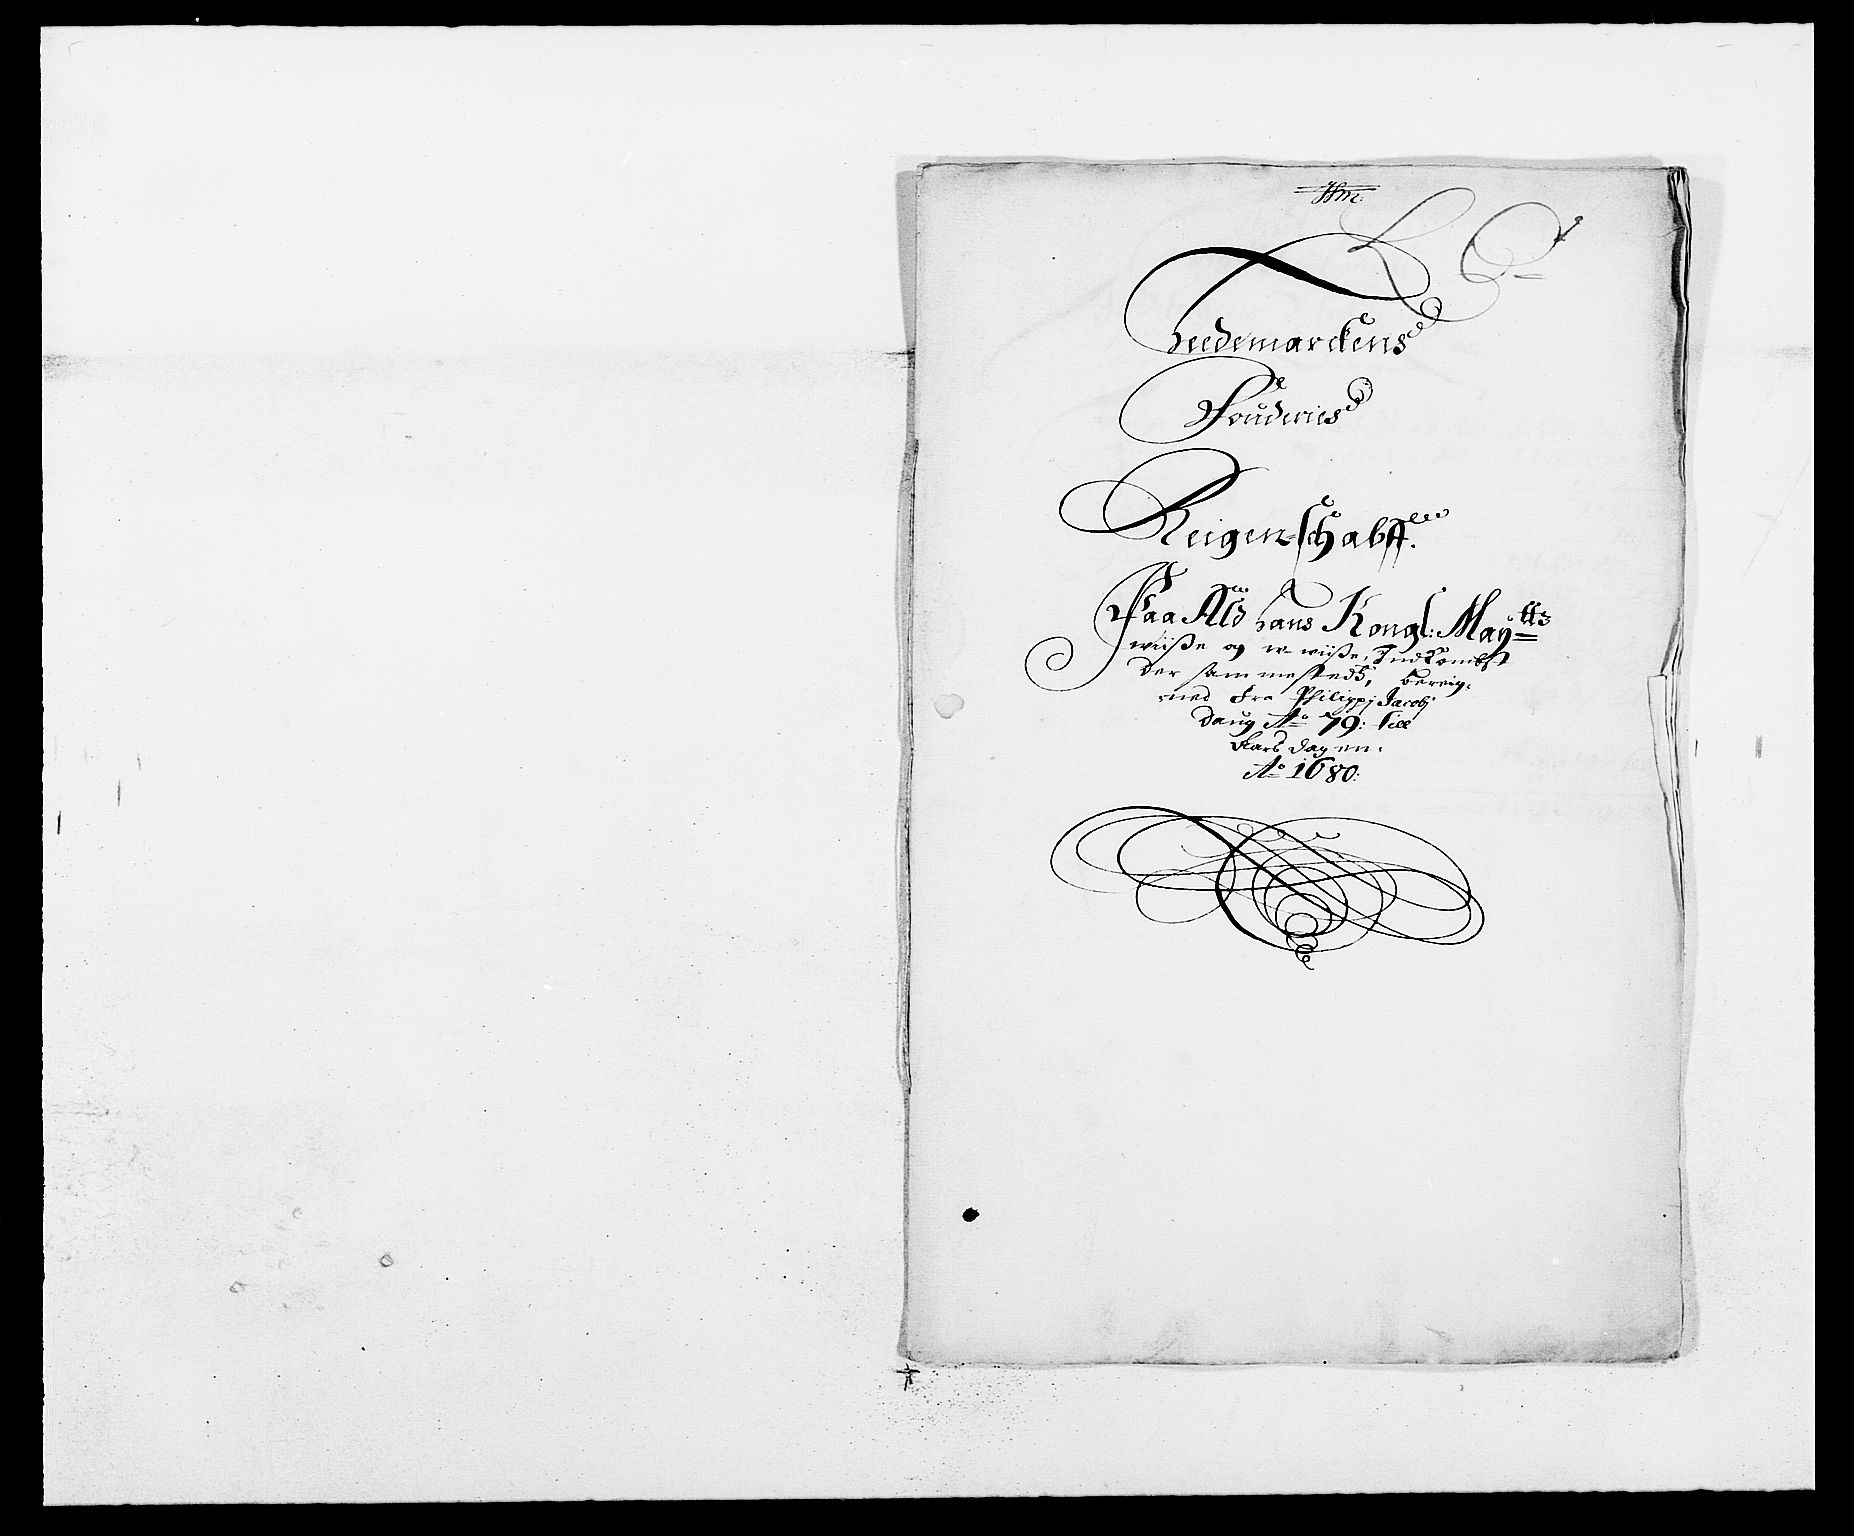 Heedemarckens
Fouderies
Reigen-schabfft.
Paa Ald hans Kongl: May:tts
wiisße og u-wiisße, Indkombst
der sammesteds, bereig-
ned fra Philippj Jacobj
daug A:o 79: till
Aars dagen.
A:o 1680: